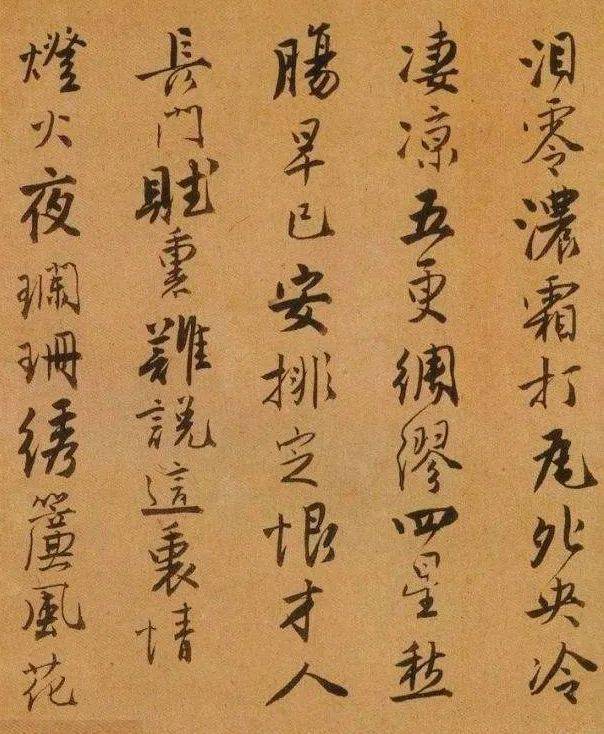 泪零濃霜打瓦夗央冷
凄凉五更綢繆四星愁
腸早已安排定恨才人
長門賦裏難說這裏情
燈火夜瓓珊綉簾風花